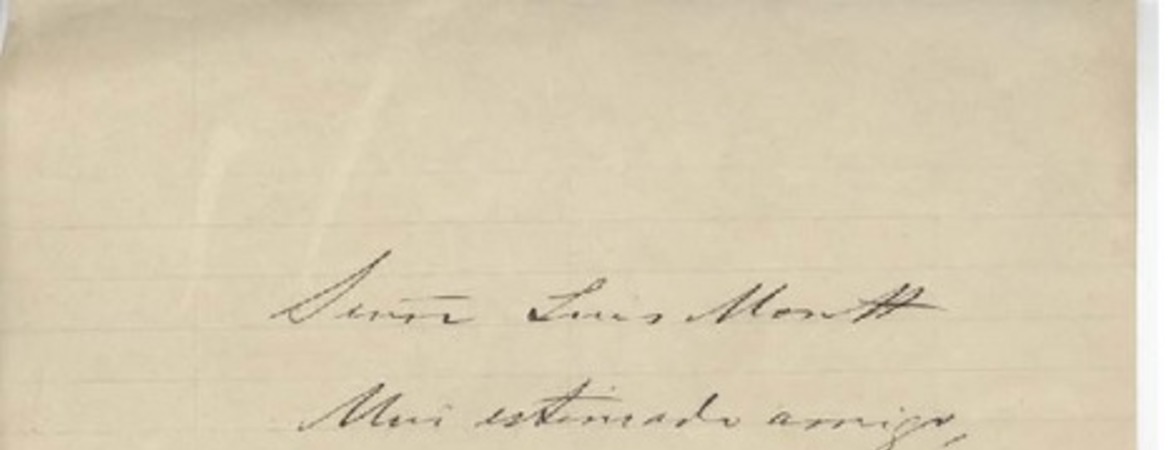 Señor Luis Montt
Mui estimado amigo,